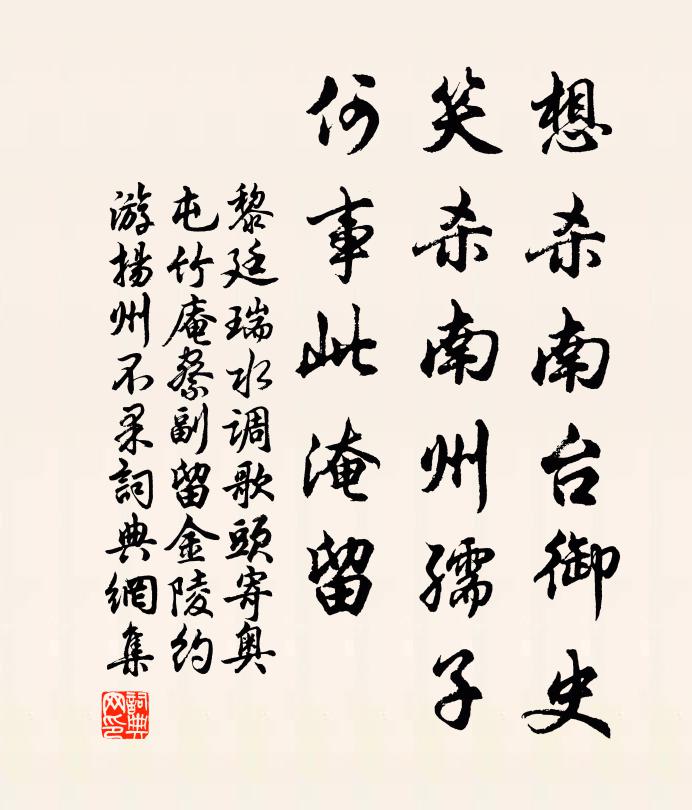 想杀南台御史
笑杀南州孺子
何事此淹留
黎廷瑞水调歌頭寄奥
屯竹庵察副留金陵约
游揚州不果詞典網集
詞典網印